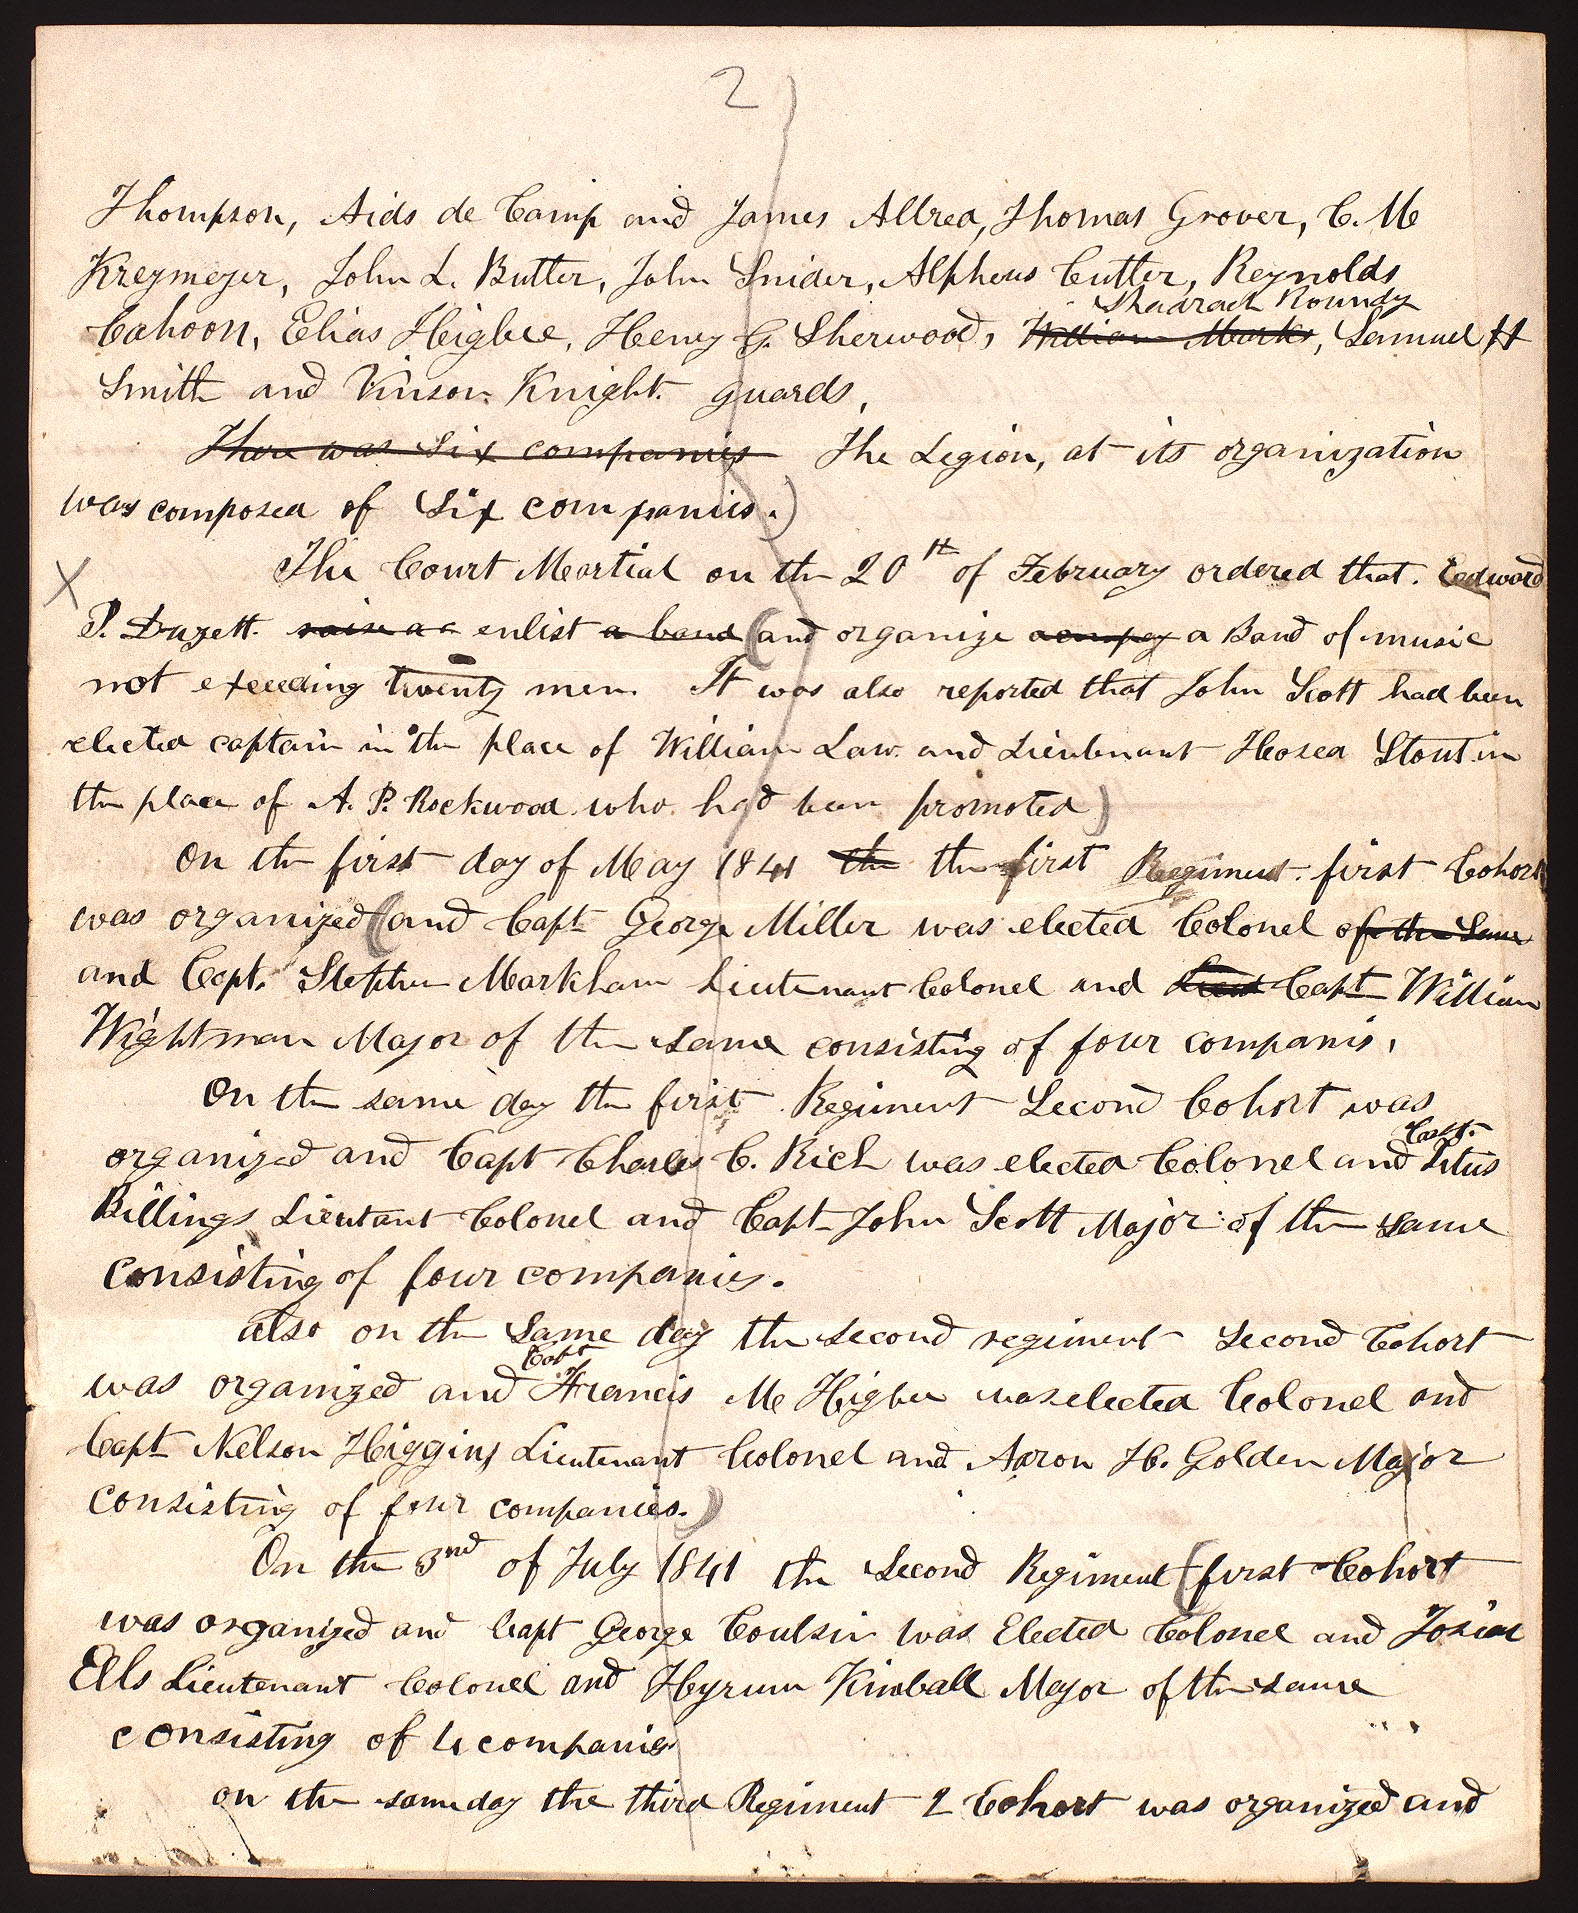 2
Thompson, Aids de Camp and James Allred, Thomas Grover, C. M
Kreymeyer, John L. Butler, John Snider, Alpheus Cutler, Reynolds
Shadrach Roundy
Cahoon, Elias Higbee, Henry G. Sherwood, William Marks, Samuel H
Smith and Vinson Knight guards,
There was Six companies The Legion, at its organization
was composed of Six companies.)
X The Court Martial on the 20th of February ordered that Edward
P. Duzett raise a enlist a band (and organize a compy a Band of music
not exceeding twenty men. It was also reported that John Scott had been
elected captain in the place of William Law and Lieutenant Hosea Stout in
the place of A. P. Rockwood who had been promoted)
On the first day of May 1841 the the first Regiment first Cohort
was organized (and Capt George Miller was elected Colonel of the Same
and Capt. Stephen Markham Lieutenant Colonel and Lieut Capt William
Wightman Major of the same consisting of four companis,
On the same day the first Regiment Second Cohort was
Capt.
organized and Capt Charles C. Rich was elected Colonel and Titus
Billings Lieutant Colonel and Capt John Scott Major of the same
consisting of four companies.
also on the Same day the second regiment Second Cohort
Capt
was organized and Francis M Higbee was elected Colonel and
Capt Nelson Higgins Lieutenant Colonel and Aaron H. Golden Major
consisting of four companies.)
On the 3nd of July 1841 the Second Regiment (first Cohort
was organized and Capt George Coulsin was Elected Colonel and Josiah
Ells Lieutenant Colonel and Hyrum Kimball Major of the same
consisting of 4 companies
on the same day the third Regiment 2 Cohort was organized and